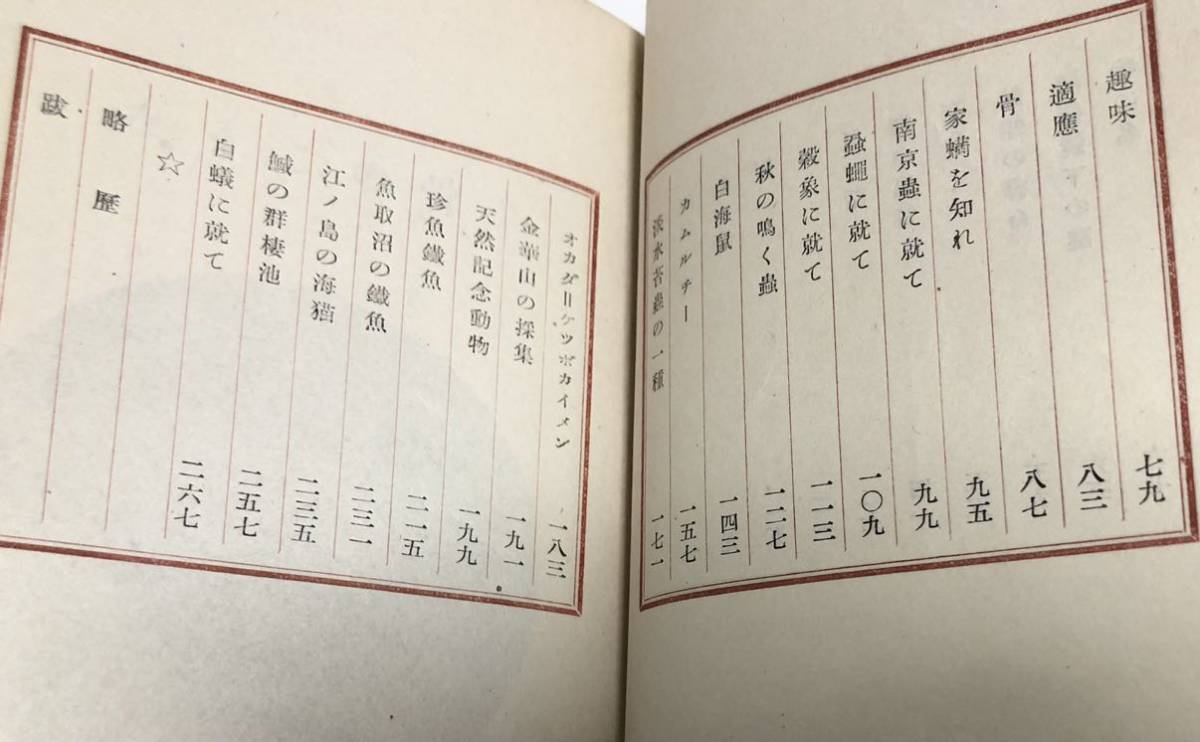 趣味 七九
適應 八三
骨 八七
家蟎を知れ 九五
南京蟲に就て 九九
蚤蠅に就て 一〇九
穀象に就て 一一三
秋の鳴く蟲 一二七
白海鼠 一四三
カムルチー 一五七
淡水苔蟲の一種 一七一
オカダ=ケツボカイメン 一八三
金華山の採集 一九一
天然記念動物 一九九
珍魚鐵魚 二一五
魚取沼の鐵魚 二三一
江ノ島の海猫 二三五
の群棲池 二五七
白蟻に就て 二六七
☆
略歷
跋